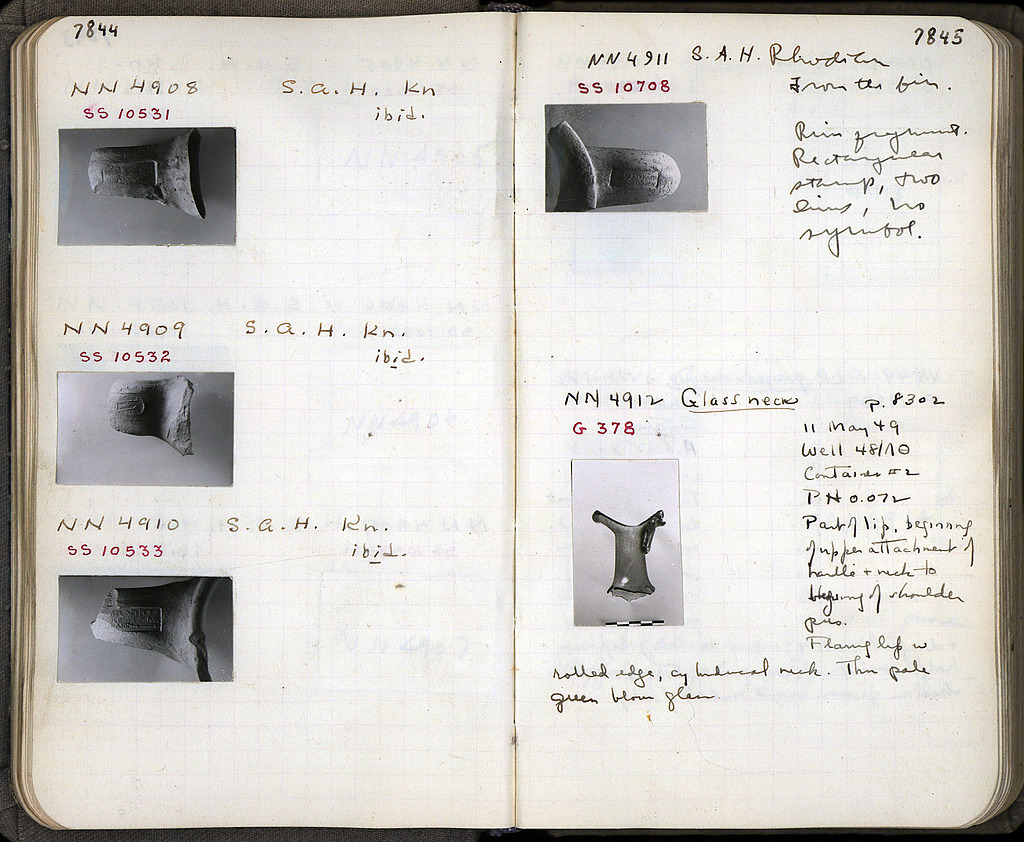 7844
NN 4908 S.A.H. Kn
SS 10531 ibid.
NN 4909 S.A.H. Kn.
SS 10532 ibid.
NN 4910 S.A.H. Kn.
SS 10533 ibid.
7845
NN 4911 S.A.H. Rhodian
SS 10708 From the bin.
Rim fragment.
Rectangular
stamp, two
lines, no
symbol.
NN 4912 Glass neck p. 8302
G 378 11 May 49
Well 48/10
Container #2
PH 0.072
Part of lip, beginning
of upper attachment of
handle + neck to
beginning of shoulder
pres.
Flaring lip w
rolled edge, cylindrical neck. Thin pale
green blown glass